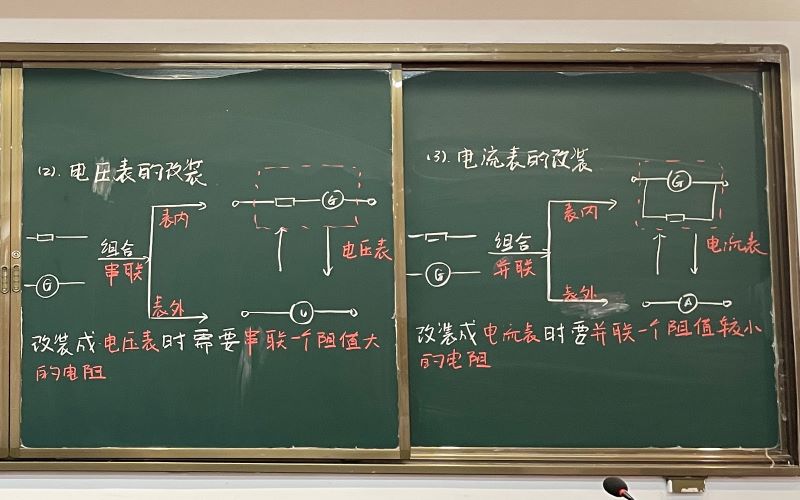 (2). 电压表的改装
G
表内
组合
串联
电压表
G
表外
V
改装成电压表时需要串联一个阻值大
的电阻
(3). 电流表的改装
G
表内
组合
并联
电流表
G
表外
A
改装成电流表时要并联一个阻值较小
的电阻